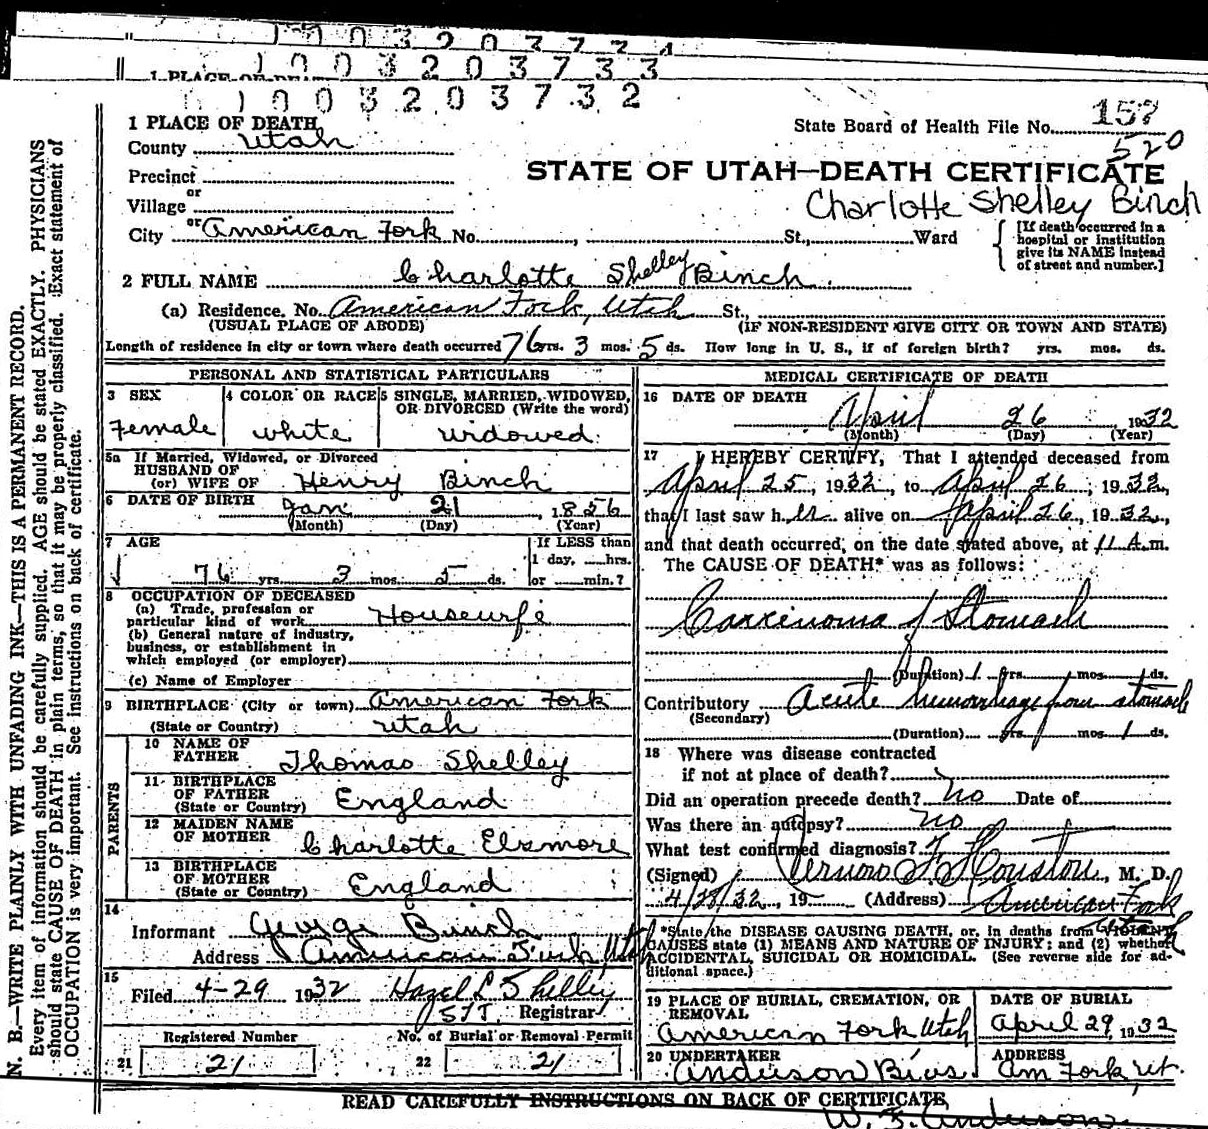 1 0 0 3 2 0 3 7 3 4
1 0 0 3 2 0 3 7 3 3
1 PLACE OF DEATH
1 0 0 3 2 0 3 7 3 2
1 PLACE OF DEATH
County Utah
State Board of Health File No. 157
520
Precinct
or
Village
or
City American Fork No. , St., Ward
STATE OF UTAH—DEATH CERTIFICATE
Charlotte Shelley Binch
[If death occurred in a
hospital or institution
give its NAME instead
of street and number.]
2 FULL NAME Charlotte Shelley Binch
(a) Residence. No. American Fork, Utah St.,
(USUAL PLACE OF ABODE) (IF NON-RESIDENT GIVE CITY OR TOWN AND STATE)
Length of residence in city or town where death occurred 76 yrs. 3 mos. 5 ds. How long in U. S., if of foreign birth? yrs. mos. ds.
PERSONAL AND STATISTICAL PARTICULARS
3 SEX
Female
4 COLOR OR RACE
white
5 SINGLE, MARRIED, WIDOWED,
OR DIVORCED (Write the word)
widowed.
5a If Married, Widowed, or Divorced
HUSBAND OF
(or) WIFE OF Henry Binch
6 DATE OF BIRTH
Jan 21, 1856
(Month) (Day) (Year)
7 AGE
76 yrs. 3 mos. 5 ds.
If LESS than
1 day, hrs.
or min.?
8 OCCUPATION OF DECEASED
(a) Trade, profession or
particular kind of work Housewife
(b) General nature of industry,
business, or establishment in
which employed (or employer)
(c) Name of Employer
9 BIRTHPLACE (City or town) American Fork
(State or Country) Utah
PARENTS
10 NAME OF
FATHER Thomas Shelley
11 BIRTHPLACE
OF FATHER
(State or Country) England
12 MAIDEN NAME
OF MOTHER Charlotte Elsmore
13 BIRTHPLACE
OF MOTHER
(State or Country) England
14
Informant George Binch
Address American Fork, Utah
15
Filed 4-29 1932 Hazel L Shelley
Registrar
Registered Number
21 21
No. of Burial or Removal Permit
22 21
MEDICAL CERTIFICATE OF DEATH
16 DATE OF DEATH
April 26 1932
(Month) (Day) (Year)
17 I HEREBY CERTIFY, That I attended deceased from
April 25, 1932, to April 26, 1932,
that I last saw her alive on April 26, 1932,
and that death occurred, on the date stated above, at 11 A.m.
The CAUSE OF DEATH* was as follows:
Carcinoma of Stomach
(Duration) 1 yrs. mos. ds.
Contributory Acute hemorrhage from stomach
(Secondary)
(Duration) yrs. mos. 1 ds.
18 Where was disease contracted
if not at place of death?
Did an operation precede death? No Date of
Was there an autopsy? No
What test confirmed diagnosis?
(Signed) Vernon F. Houston, M. D.
4/28/32, 19 (Address) American Fork
*State the DISEASE CAUSING DEATH, or, in deaths from VIOLENT
CAUSES state (1) MEANS AND NATURE OF INJURY; and (2) whether
ACCIDENTAL, SUICIDAL OR HOMICIDAL. (See reverse side for ad-
ditional space.)
19 PLACE OF BURIAL, CREMATION, OR
REMOVAL
American Fork Utah
DATE OF BURIAL
April 29, 1932
20 UNDERTAKER
Anderson Bros.
ADDRESS
Am Fork, Ut.
READ CAREFULLY INSTRUCTIONS ON BACK OF CERTIFICATE
W. F. Anderson.
N. B.—WRITE PLAINLY WITH UNFADING INK—THIS IS A PERMANENT RECORD.
Every item of information should be carefully supplied. AGE should be stated EXACTLY. PHYSICIANS
should state CAUSE OF DEATH in plain terms, so that it may be properly classified. Exact statement of
OCCUPATION is very important. See instructions on back of certificate.